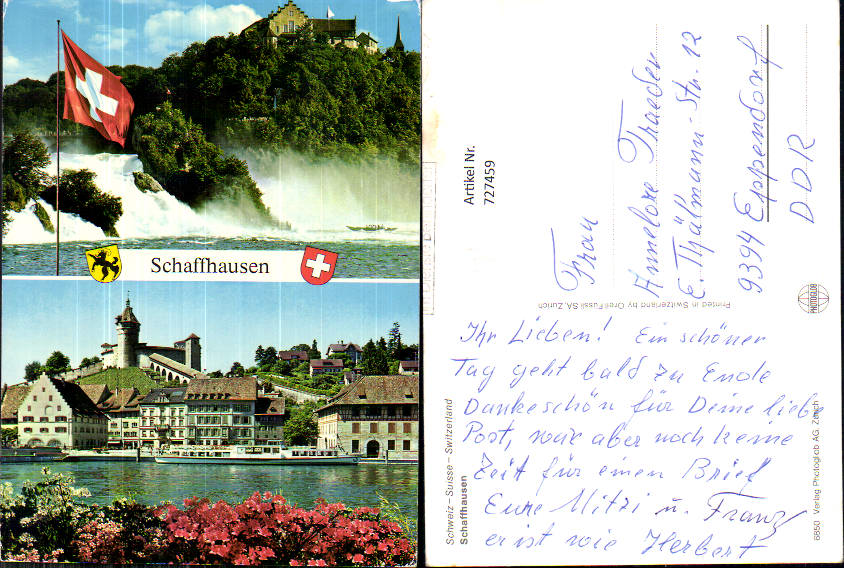 Schaffhausen
Artikel Nr.
727459
Frau
Annelore Traeden
E. Thälmann-Str. 12
9394 Eppendorf
DDR
Printed in Switzerland by Orell Füssli SA, Zürich
PHOTOGLOB
Ihr Lieben! Ein schöner
Tag geht bald zu Ende
Dankeschön für Deine liebe
Post, war aber noch keine
Zeit für einen Brief
Eure Mitzi u. Franz
er ist wie Herbert
Schweiz – Suisse – Switzerland
Schaffhausen
6850 Verlag Photoglob AG, Zürich